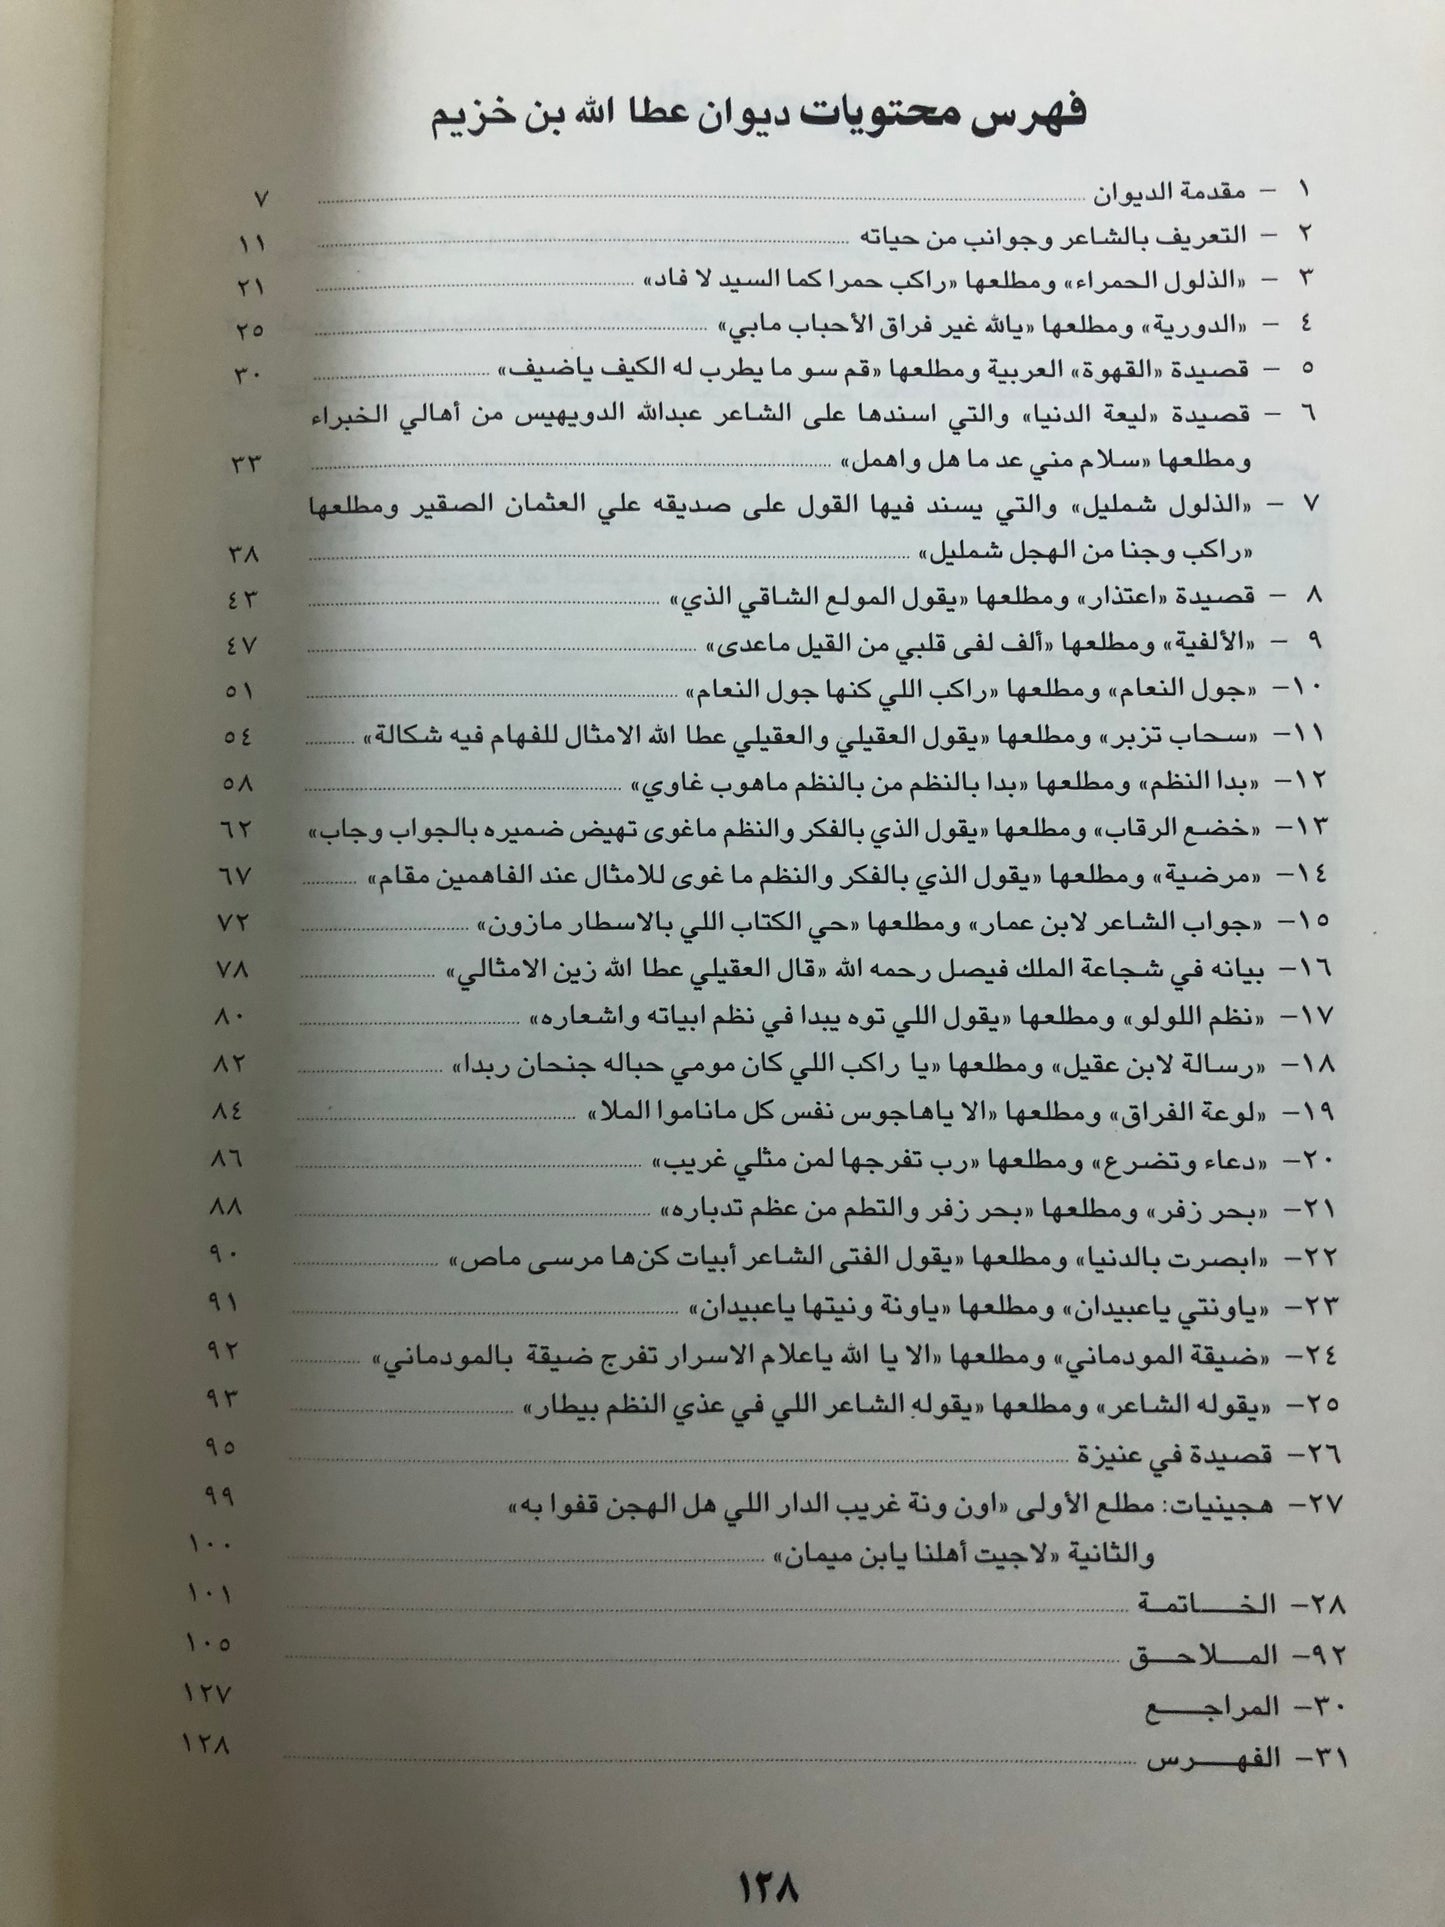 فهرس محتويات ديوان عطا الله بن خزيم
١ - مقدمة الديوان ........ ٧
٢ - التعريف بالشاعر وجوانب من حياته ........ ١١
٣ - «الذلول الحمراء» ومطلعها «راكب حمرا كما السيد لا فاد» ........ ٢١
٤ - «الدورية» ومطلعها «يالله غير فراق الأحباب مابي» ........ ٢٥
٥ - قصيدة «القهوة» العربية ومطلعها «قم سو ما يطرب له الكيف ياضيف» ........ ٣٠
٦ - قصيدة «ليعة الدنيا» والتي اسندها على الشاعر عبدالله الدويهيس من أهالي الخبراء
ومطلعها «سلام مني عد ما هل واهمل» ........ ٣٣
٧ - «الذلول شمليل» والتي يسند فيها القول على صديقه علي العثمان الصقير ومطلعها
«راكب وجنا من الهجل شمليل» ........ ٣٨
٨ - قصيدة «اعتذار» ومطلعها «يقول المولع الشاقي الذي» ........ ٤٣
٩ - «الألفية» ومطلعها «ألف لفى قلبي من القيل ماعدى» ........ ٤٧
١٠- «جول النعام» ومطلعها «راكب اللي كنها جول النعام» ........ ٥١
١١- «سحاب تزبر» ومطلعها «يقول العقيلي والعقيلي عطا الله الامثال للفهام فيه شكالة» ........ ٥٤
١٢- «بدا النظم» ومطلعها «بدا بالنظم من بالنظم ماهوب غاوي» ........ ٥٨
١٣- «خضع الرقاب» ومطلعها «يقول الذي بالفكر والنظم ماغوى تهيض ضميره بالجواب وجاب» ٦٢
١٤- «مرضية» ومطلعها «يقول الذي بالفكر والنظم ما غوى للامثال عند الفاهمين مقام» ........ ٦٧
١٥- «جواب الشاعر لابن عمار» ومطلعها «حي الكتاب اللي بالاسطار مازون» ........ ٧٢
١٦- بيانه في شجاعة الملك فيصل رحمه الله «قال العقيلي عطا الله زين الامثالي» ........ ٧٨
١٧- «نظم اللولو» ومطلعها «يقول اللي توه يبدا في نظم ابياته واشعاره» ........ ٨٠
١٨- «رسالة لابن عقيل» ومطلعها «يا راكب اللي كان مومي حباله جنحان ربدا» ........ ٨٢
١٩- «لوعة الفراق» ومطلعها «الا ياهاجوس نفس كل ماناموا الملا» ........ ٨٤
٢٠- «دعاء وتضرع» ومطلعها «رب تفرجها لمن مثلي غريب» ........ ٨٦
٢١- «بحر زفر» ومطلعها «بحر زفر والتطم من عظم تدباره» ........ ٨٨
٢٢- «ابصرت بالدنيا» ومطلعها «يقول الفتى الشاعر أبيات كن‌ها مرسى ماص» ........ ٩٠
٢٣- «ياونتي ياعبيدان» ومطلعها «ياونة ونيتها ياعبيدان» ........ ٩١
٢٤- «ضيقة المودماني» ومطلعها «الا يا الله ياعلام الاسرار تفرج ضيقة بالمودماني» ........ ٩٢
٢٥- «يقوله الشاعر» ومطلعها «يقوله الشاعر اللي في عذي النظم بيطار» ........ ٩٣
٢٦- قصيدة في عنيزة ........ ٩٥
٢٧- هجينيات: مطلع الأولى «اون ونة غريب الدار اللي هل الهجن قفوا به» ٩٩
والثانية «لاجيت أهلنا يابن ميمان» ........ ١٠٠
٢٨- الخـــاتمـة ........ ١٠١
٩٢- المـــلاحـــق ........ ١٠٥
٣٠- المراجـــــع ١٢٧
٣١- الفهـــــرس ........ ١٢٨
١٢٨